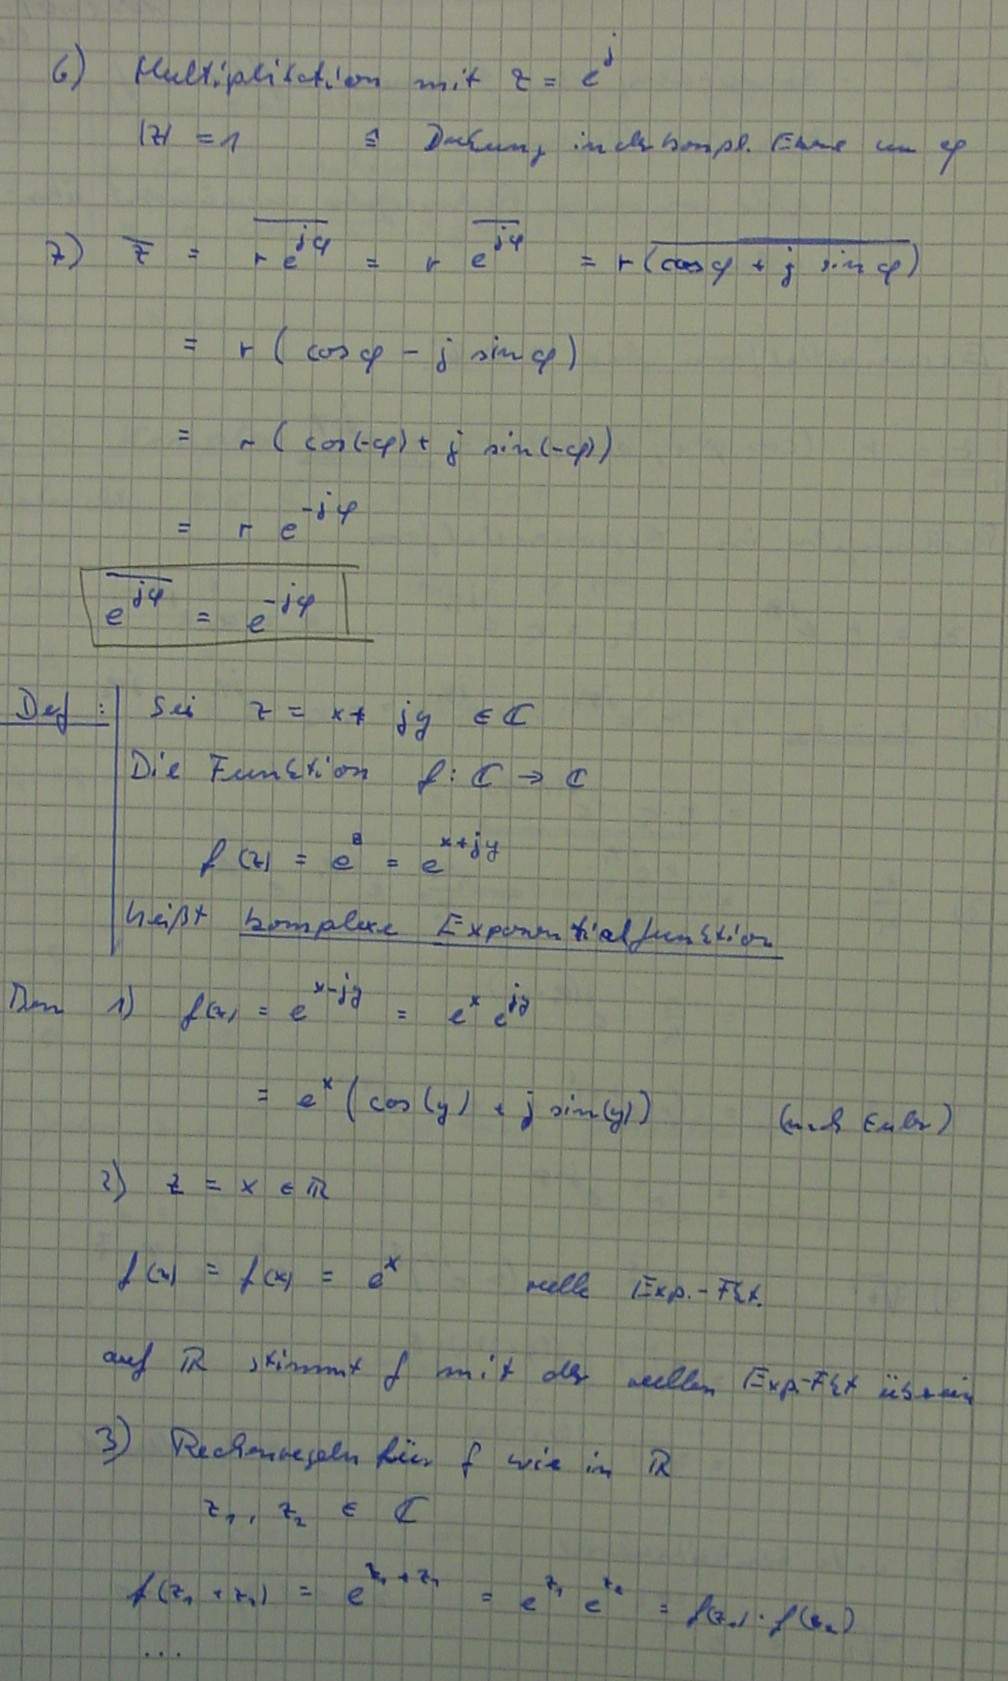 6) Multiplikation mit z = e^j
|z| = 1 ≙ Drehung in der kompl. Ebene um φ
7) z̅ = \overline{r e^{jφ}} = r \overline{e^{jφ}} = r (\overline{cos φ + j sin φ})
= r ( cos φ - j sin φ )
= r ( cos(-φ) + j sin(-φ) )
= r e^{-jφ}
\overline{e^{jφ}} = e^{-jφ}
Def : Sei z = x + jy ∈ ℂ
Die Funktion f : ℂ → ℂ
f (z) = e^z = e^{x+jy}
heißt komplexe Exponentialfunktion
Bem 1) f(z) = e^{x-jy} = e^x e^{jy}
= e^x ( cos(y) + j sin(y) ) (nach Euler)
2) z = x ∈ ℝ
f(z) = f(x) = e^x reelle Exp.-Fkt.
auf ℝ stimmt f mit der reellen Exp-Fkt überein
3) Rechenregeln für f wie in ℝ
z_1, z_2 ∈ ℂ
f(z_1 + z_2) = e^{z_1 + z_2} = e^{z_1} e^{z_2} = f(z_1) · f(z_2)
...